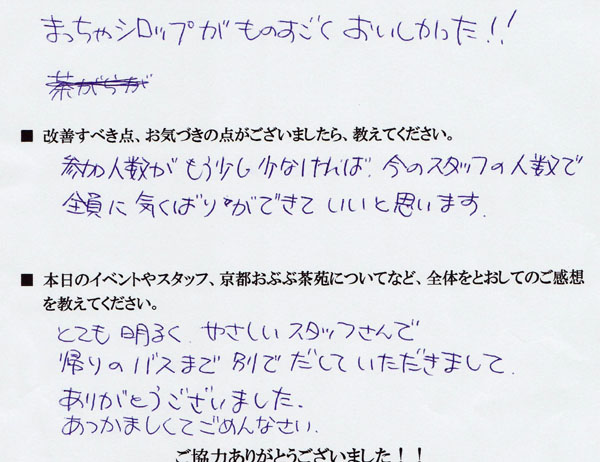 まっちゃシロップがものすごくおいしかった!!
茶がらが
■ 改善すべき点、お気づきの点がございましたら、教えてください。
参加人数がもう少し少なければ、今のスタッフの人数で
全員に気くばりができていいと思います。
■ 本日のイベントやスタッフ、京都おぶぶ茶苑についてなど、全体をとおしてのご感想
を教えてください。
とても明るく、やさしいスタッフさんで
帰りのバスまで別でだしていただきまして、
ありがとうございました、
あつかましくてごめんなさい。
ご協力ありがとうございました！！